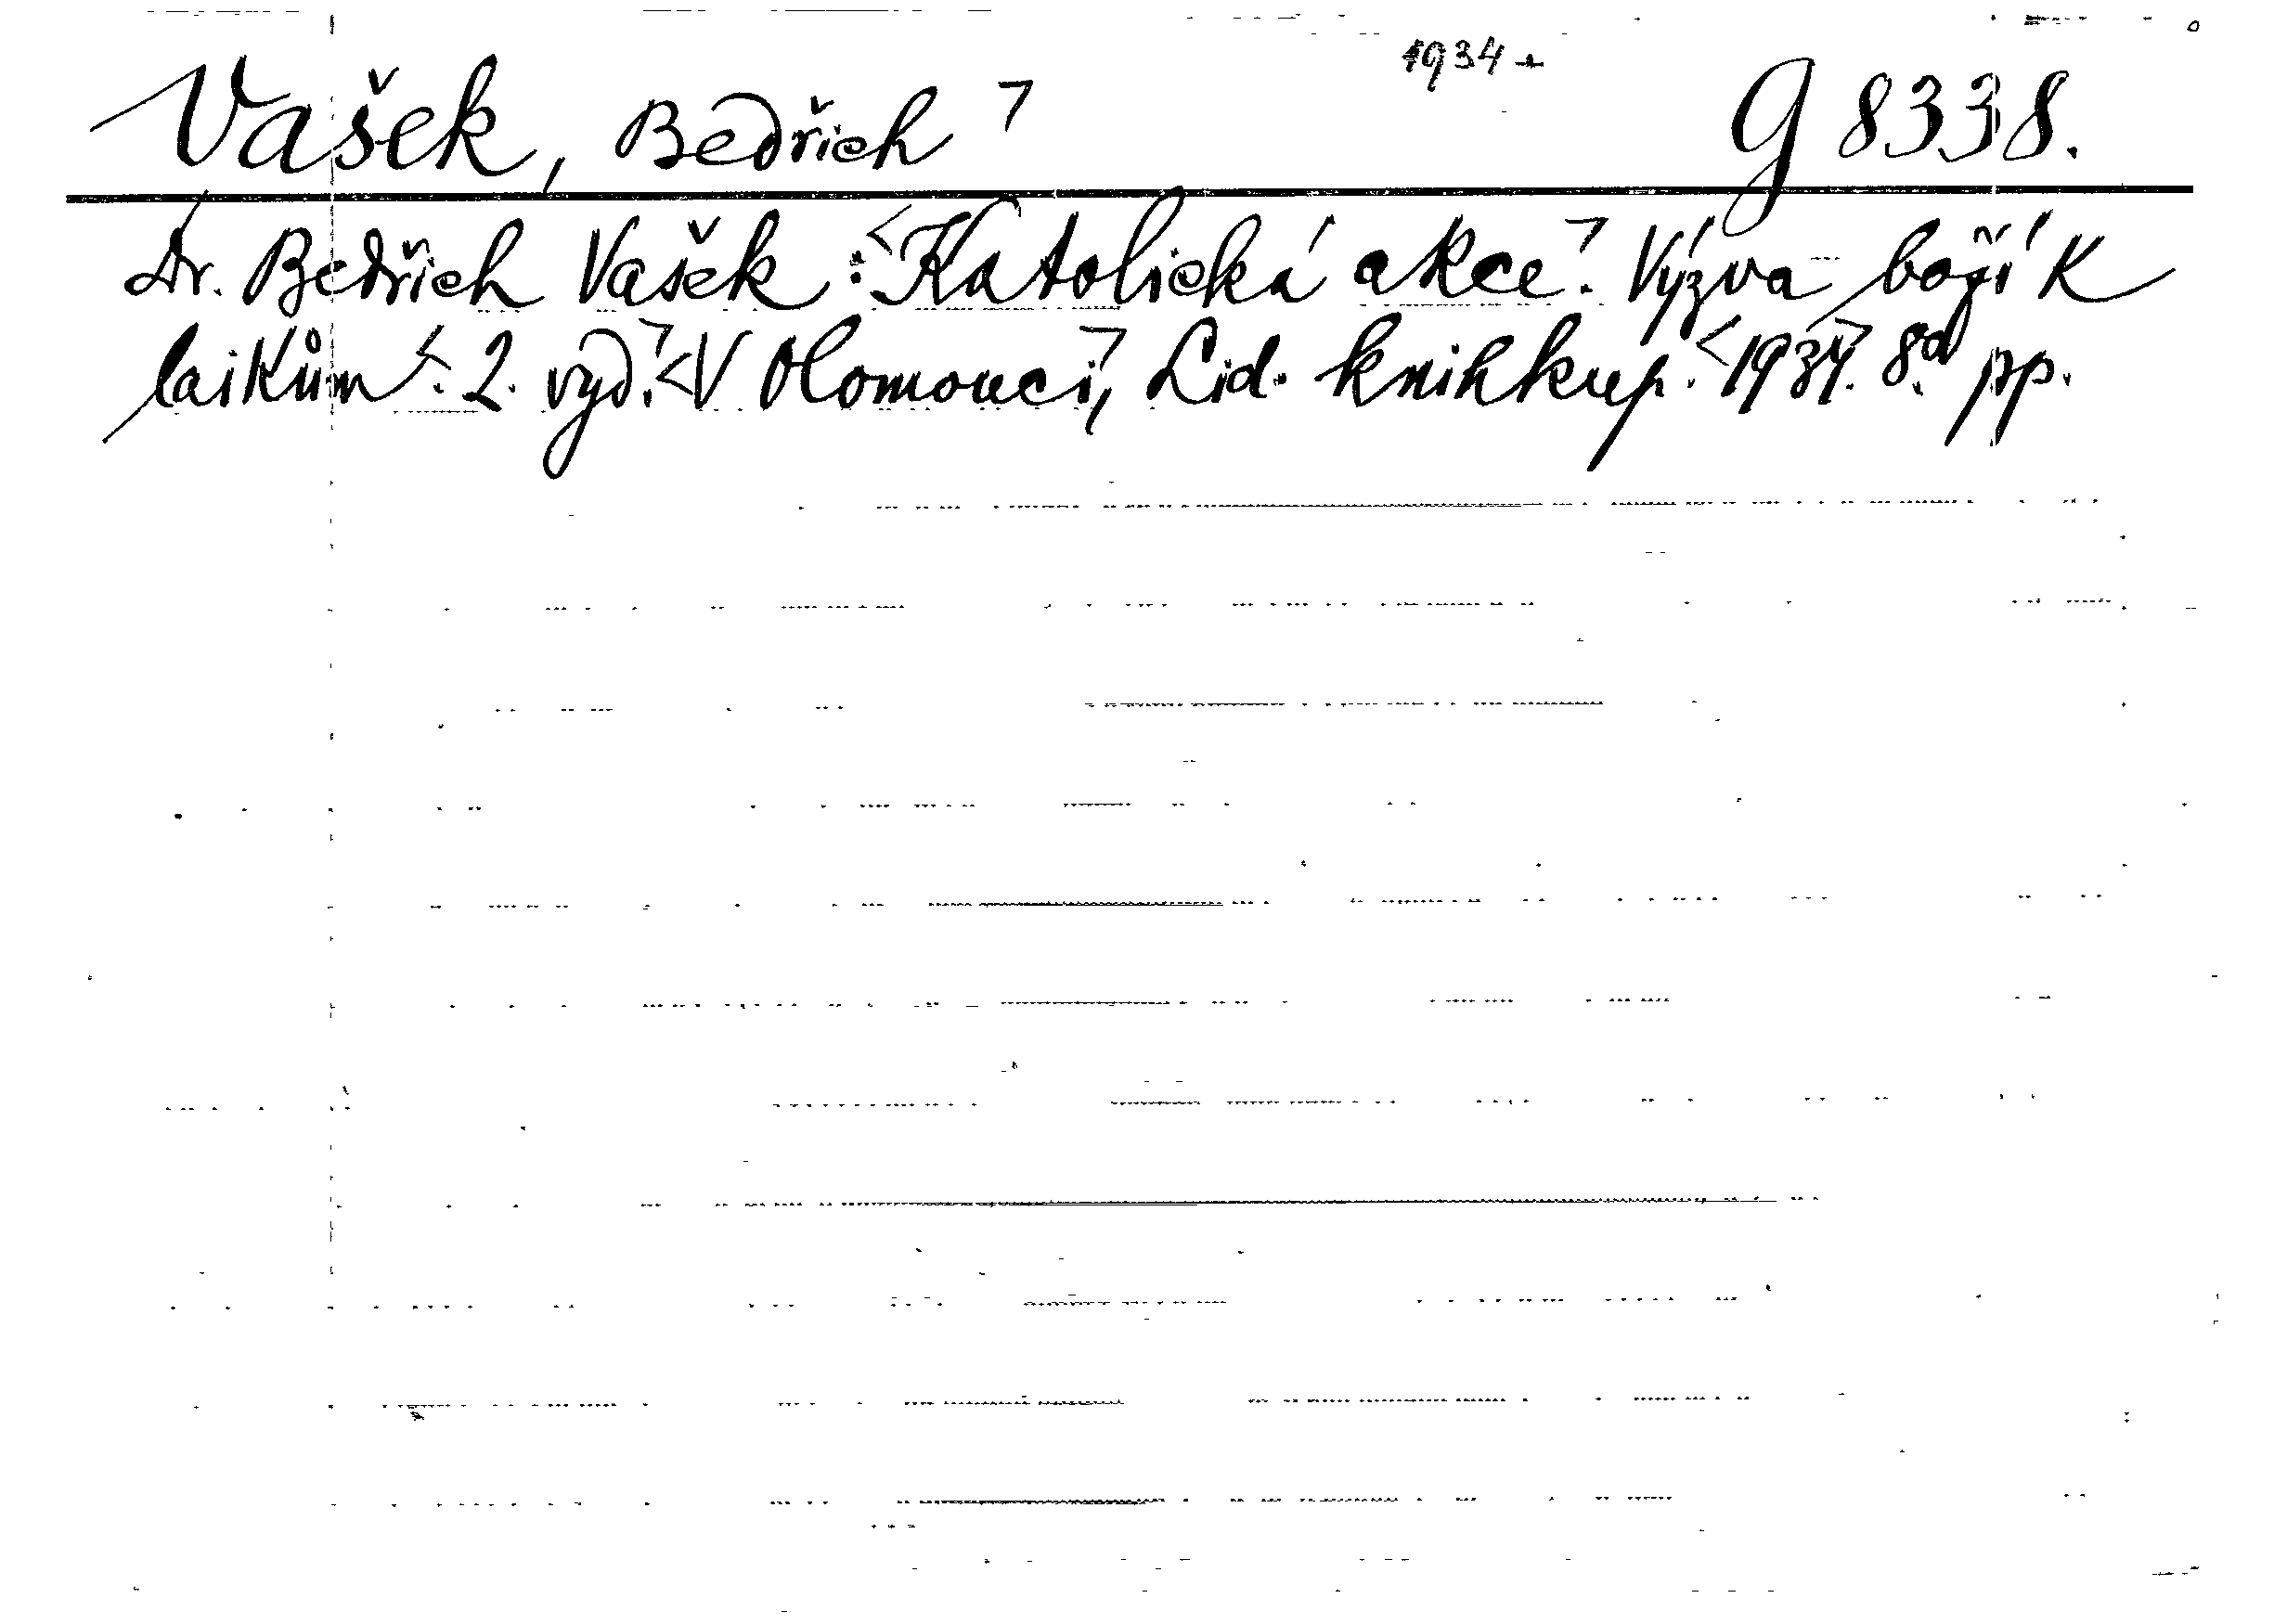 1934 +
Vašek, Bedřich ㄱ G 8338.
Dr. Bedřich Vašek : <Katolická akceㄱ. Výzva boží k
laikům <. 2. vyd.ㄱ <V Olomouciㄱ, Lid. knihkup. <1934ㄱ. 8.° pp.